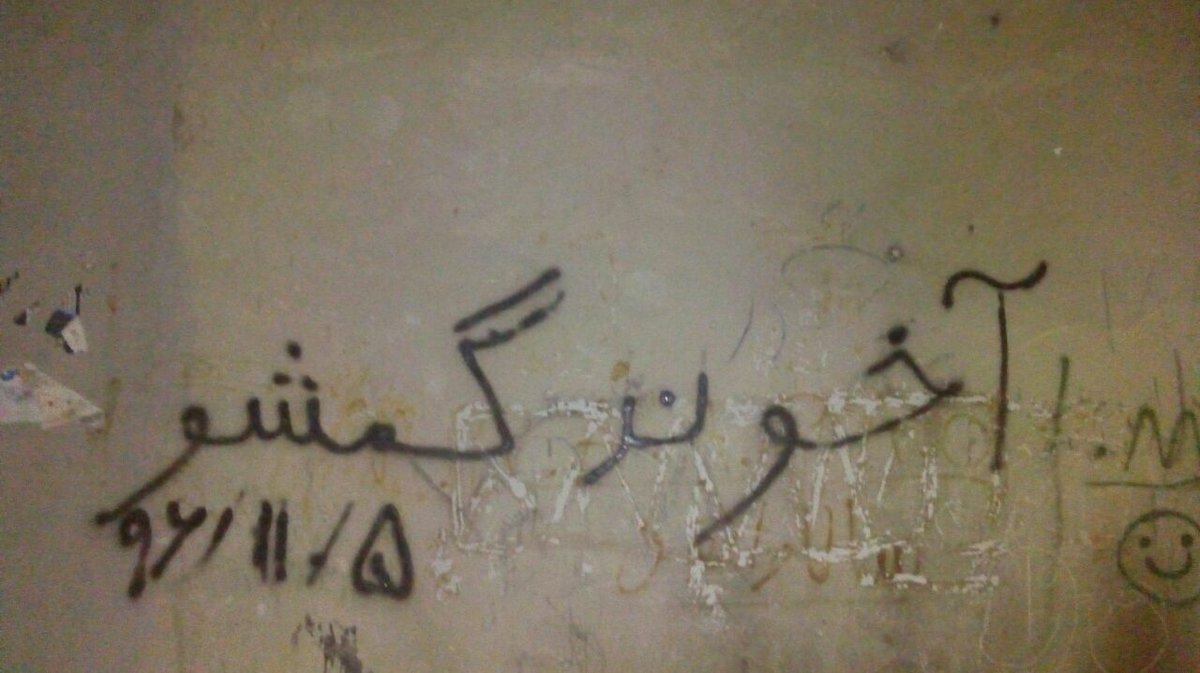 آخوند گمشو
۹۶/۱۱/۵